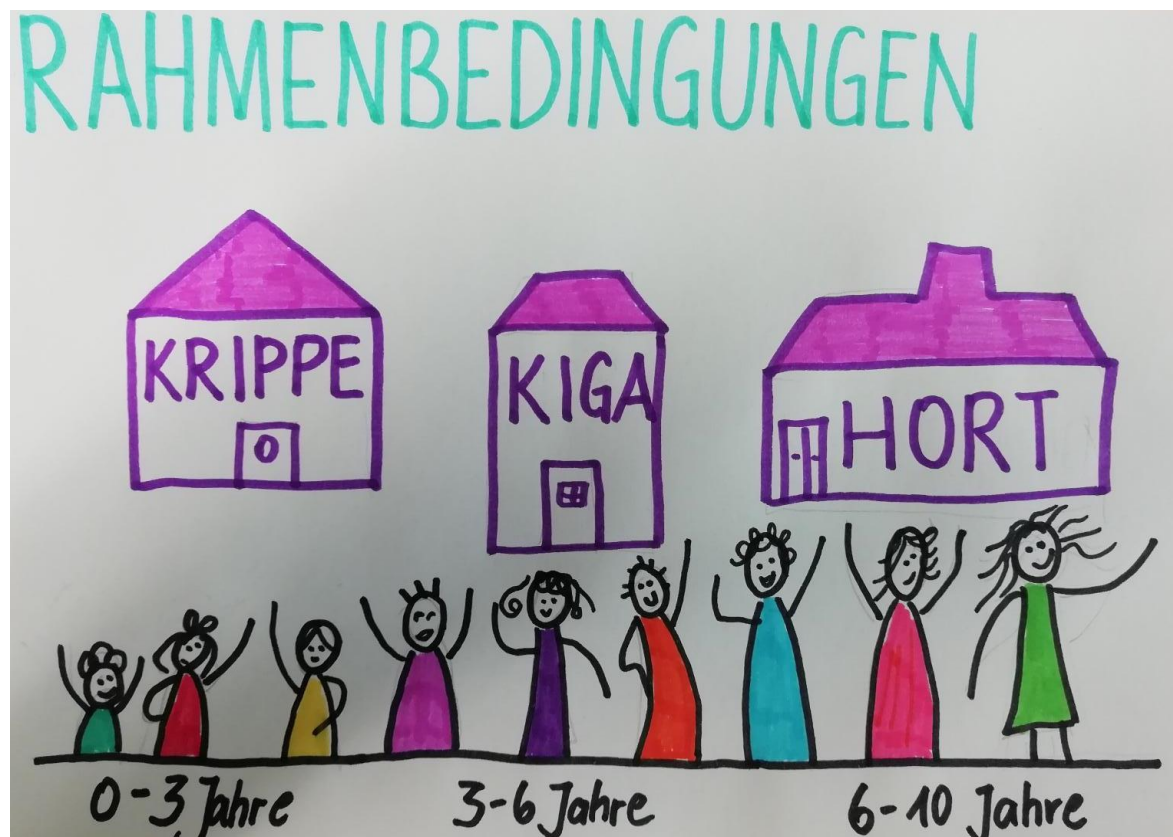 RAHMENBEDINGUNGEN
KRIPPE
KIGA
HORT
0-3 Jahre
3-6 Jahre
6-10 Jahre